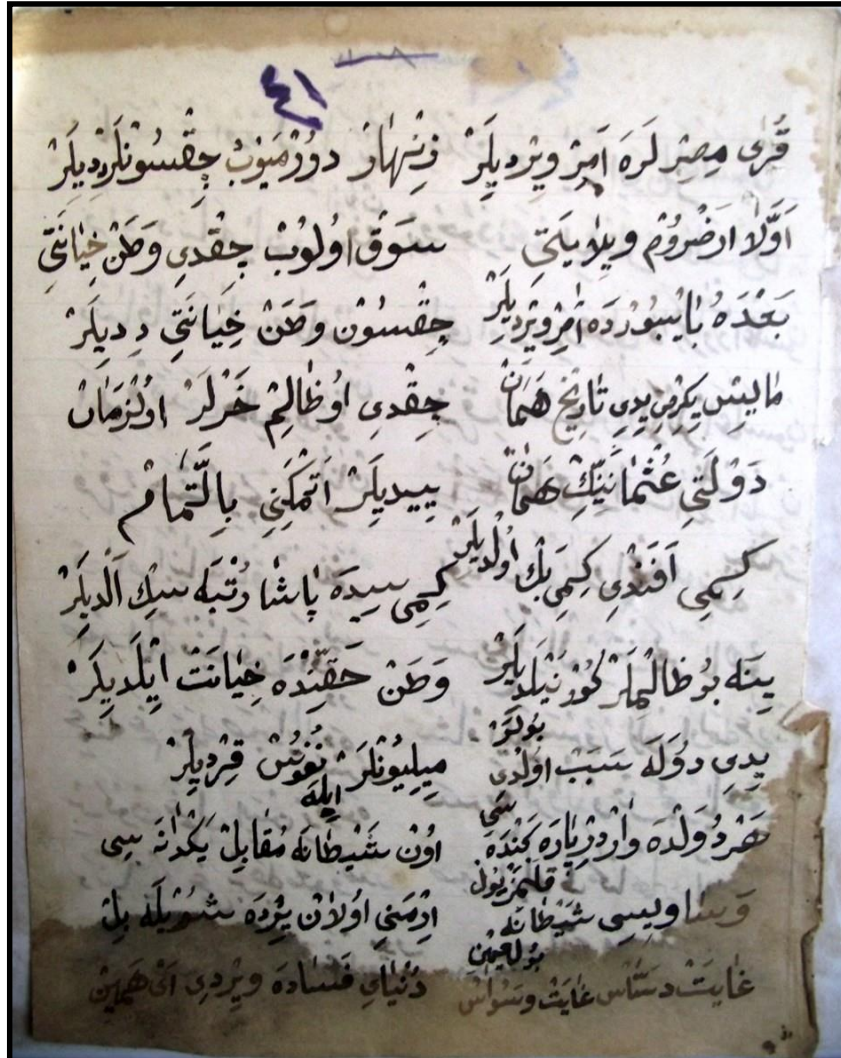 ٤١
قُرٰى مِصِرْلَرَه اَمِرْ وِيرْدِيلَرْ زِنْهَارْ دُورْمَيُوبْ چِقْسُونْلَرْ دِيدِيلَرْ
اَوَّلَا اَرضْرُومْ وِيلَايَتِي سَوْقْ اُولُوبْ چِقْدِي وَطَنْ خِيَانَتِي
بَعْدَهُ بَايْبُورْدَه اَمِرْ وِيرْدِيلَرْ چِقْسُونْ وَطَنْ خِيَانَتِي دِدِيلَرْ
مَايِسْ يِكِرْمِي يِدِي تَارِيخْ هَمَانْ چِقْدِي اُو ظَالِمْ خَرْلَرْ اُولْزَمَانْ
دَوْلَتِي عُثْمَانِينِكْ هَمَانْ يِيدِيلَرْ اَتْمَكِنِي بِالتَّمَامْ
كِيمِي اَفَنْدِي كِيمِي بَكْ اُولْدِيلَرْ كِيمِي سِيدَه پَاشَا رُتْبَه سِنِكْ اَلْدِيلَرْ
يِينَه بُو ظَالِمْلَرْ كُورْ نَيْلَدِيلَرْ وَطَنْ حَقِّنْدَه خِيَانَتْ اَيْلَدِيلَرْ
يِدِي دُوَلَه سَبَبْ اُولْدِي بُولَرْ مِيلِيُونْلَرْ اِيلَه نُفُوسْ قِرْدِيلَرْ
هَرْ دُوَلْدَه وَارْدِرْ پَارَه كَنْدَه سِي اُونْ شَيْطَانَه مُقَابِلْ يَكْدَانَه سِي
اُويسِي شَيْطَانَه قَلْمَزْ يُولْ اِرْمَنِي اُولَانْ يِرْدَه شُويْلَه بِلْ
غَايَتْ دَسَّاسْ غَايَتْ وَسْوَاسْ بُو لَعِينْ دُنْيَايِ فَسَادَه وِيرْدِي اَنْ هَمِينْ